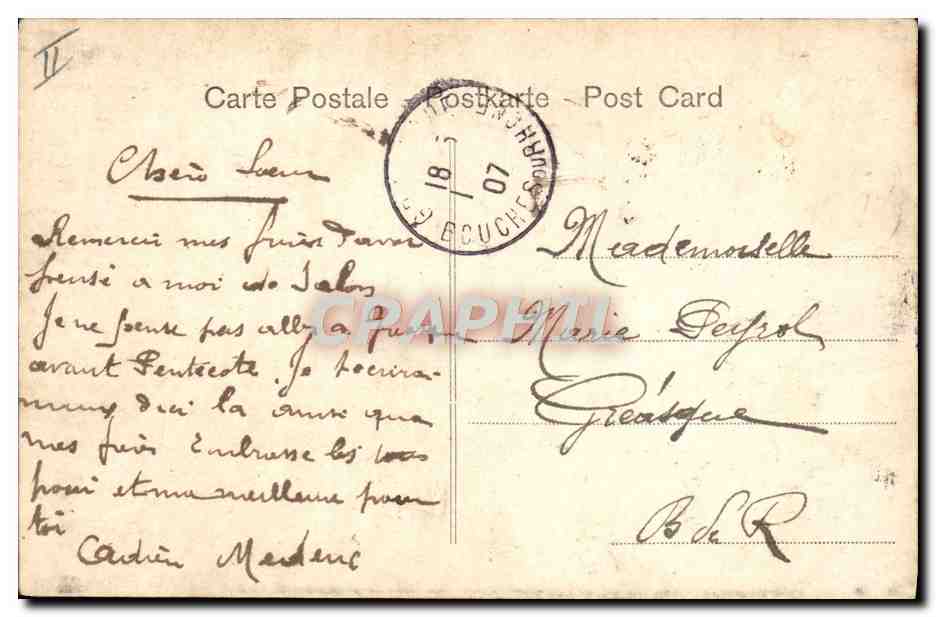 II
Carte Postale Postkarte Post Card
18 - 1 07
BOUCHES DU RHONE
Chère Soeur
Remercie mes frères d'avoir
pensé a moi de Salon
Je ne pense pas aller a
avant Pentecote. Je t'ecrirai
mieux d'ici la ainsi qua
mes frères Embrasse les
pour et ma meilleure pour
toi
Mederic
Mademoiselle
Marie Peyrol
Gréasque
B du R
CPAPHIL